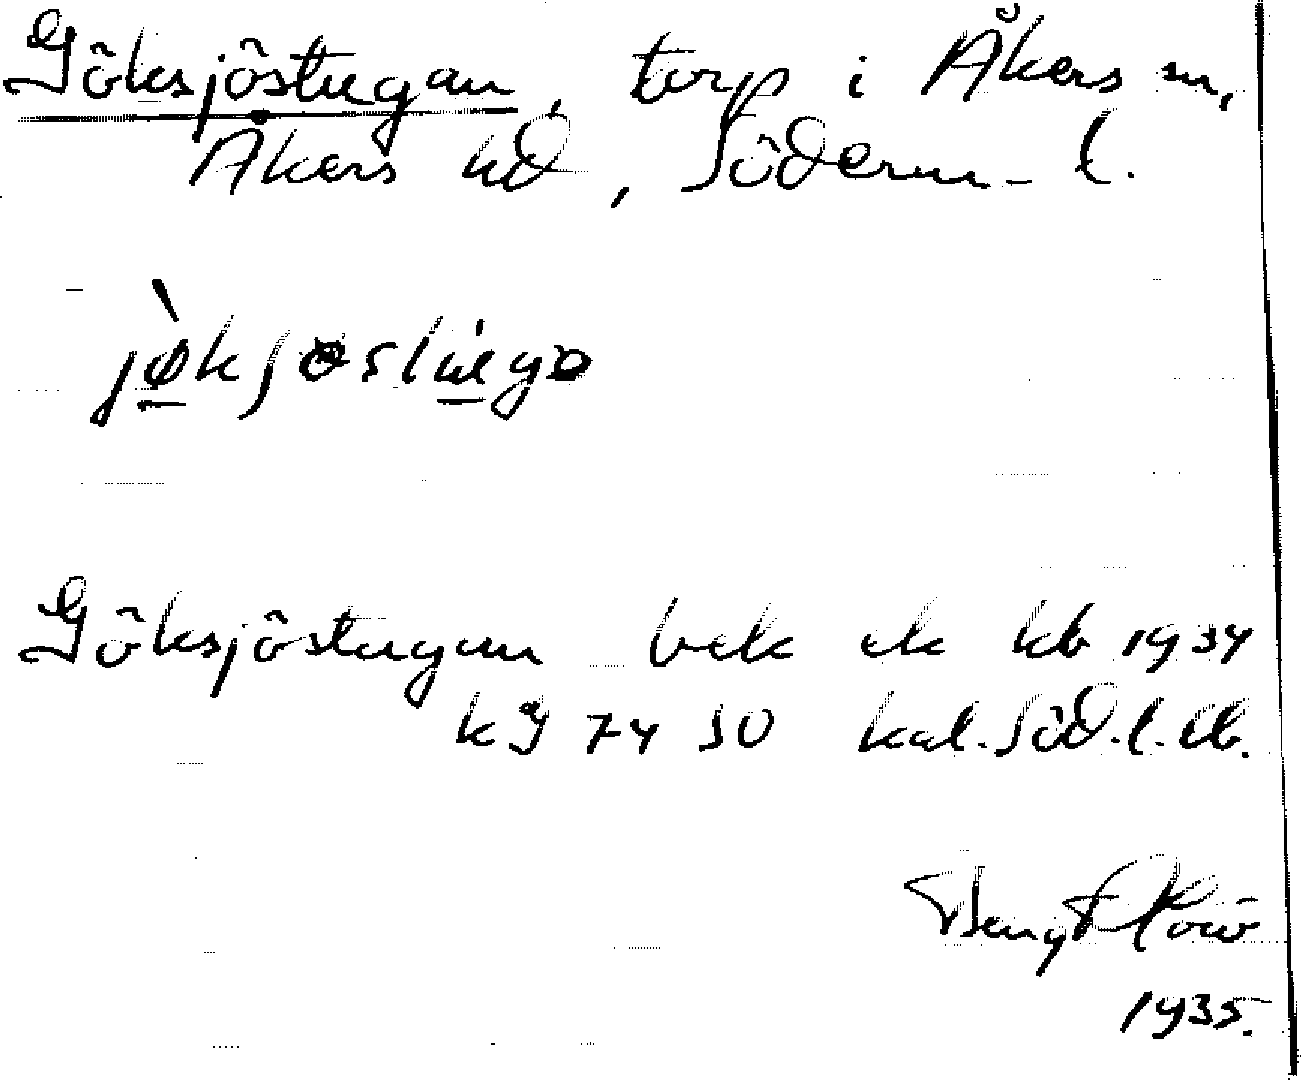 Göksjöstugan, torp i Åkers sn,
Åkers hd, Söderm-l.
jøksjøstugo
Göksjöstugan bek ek kb 1934
kg 74 50 kal. Söd.l. lb.
Bengt
1935.